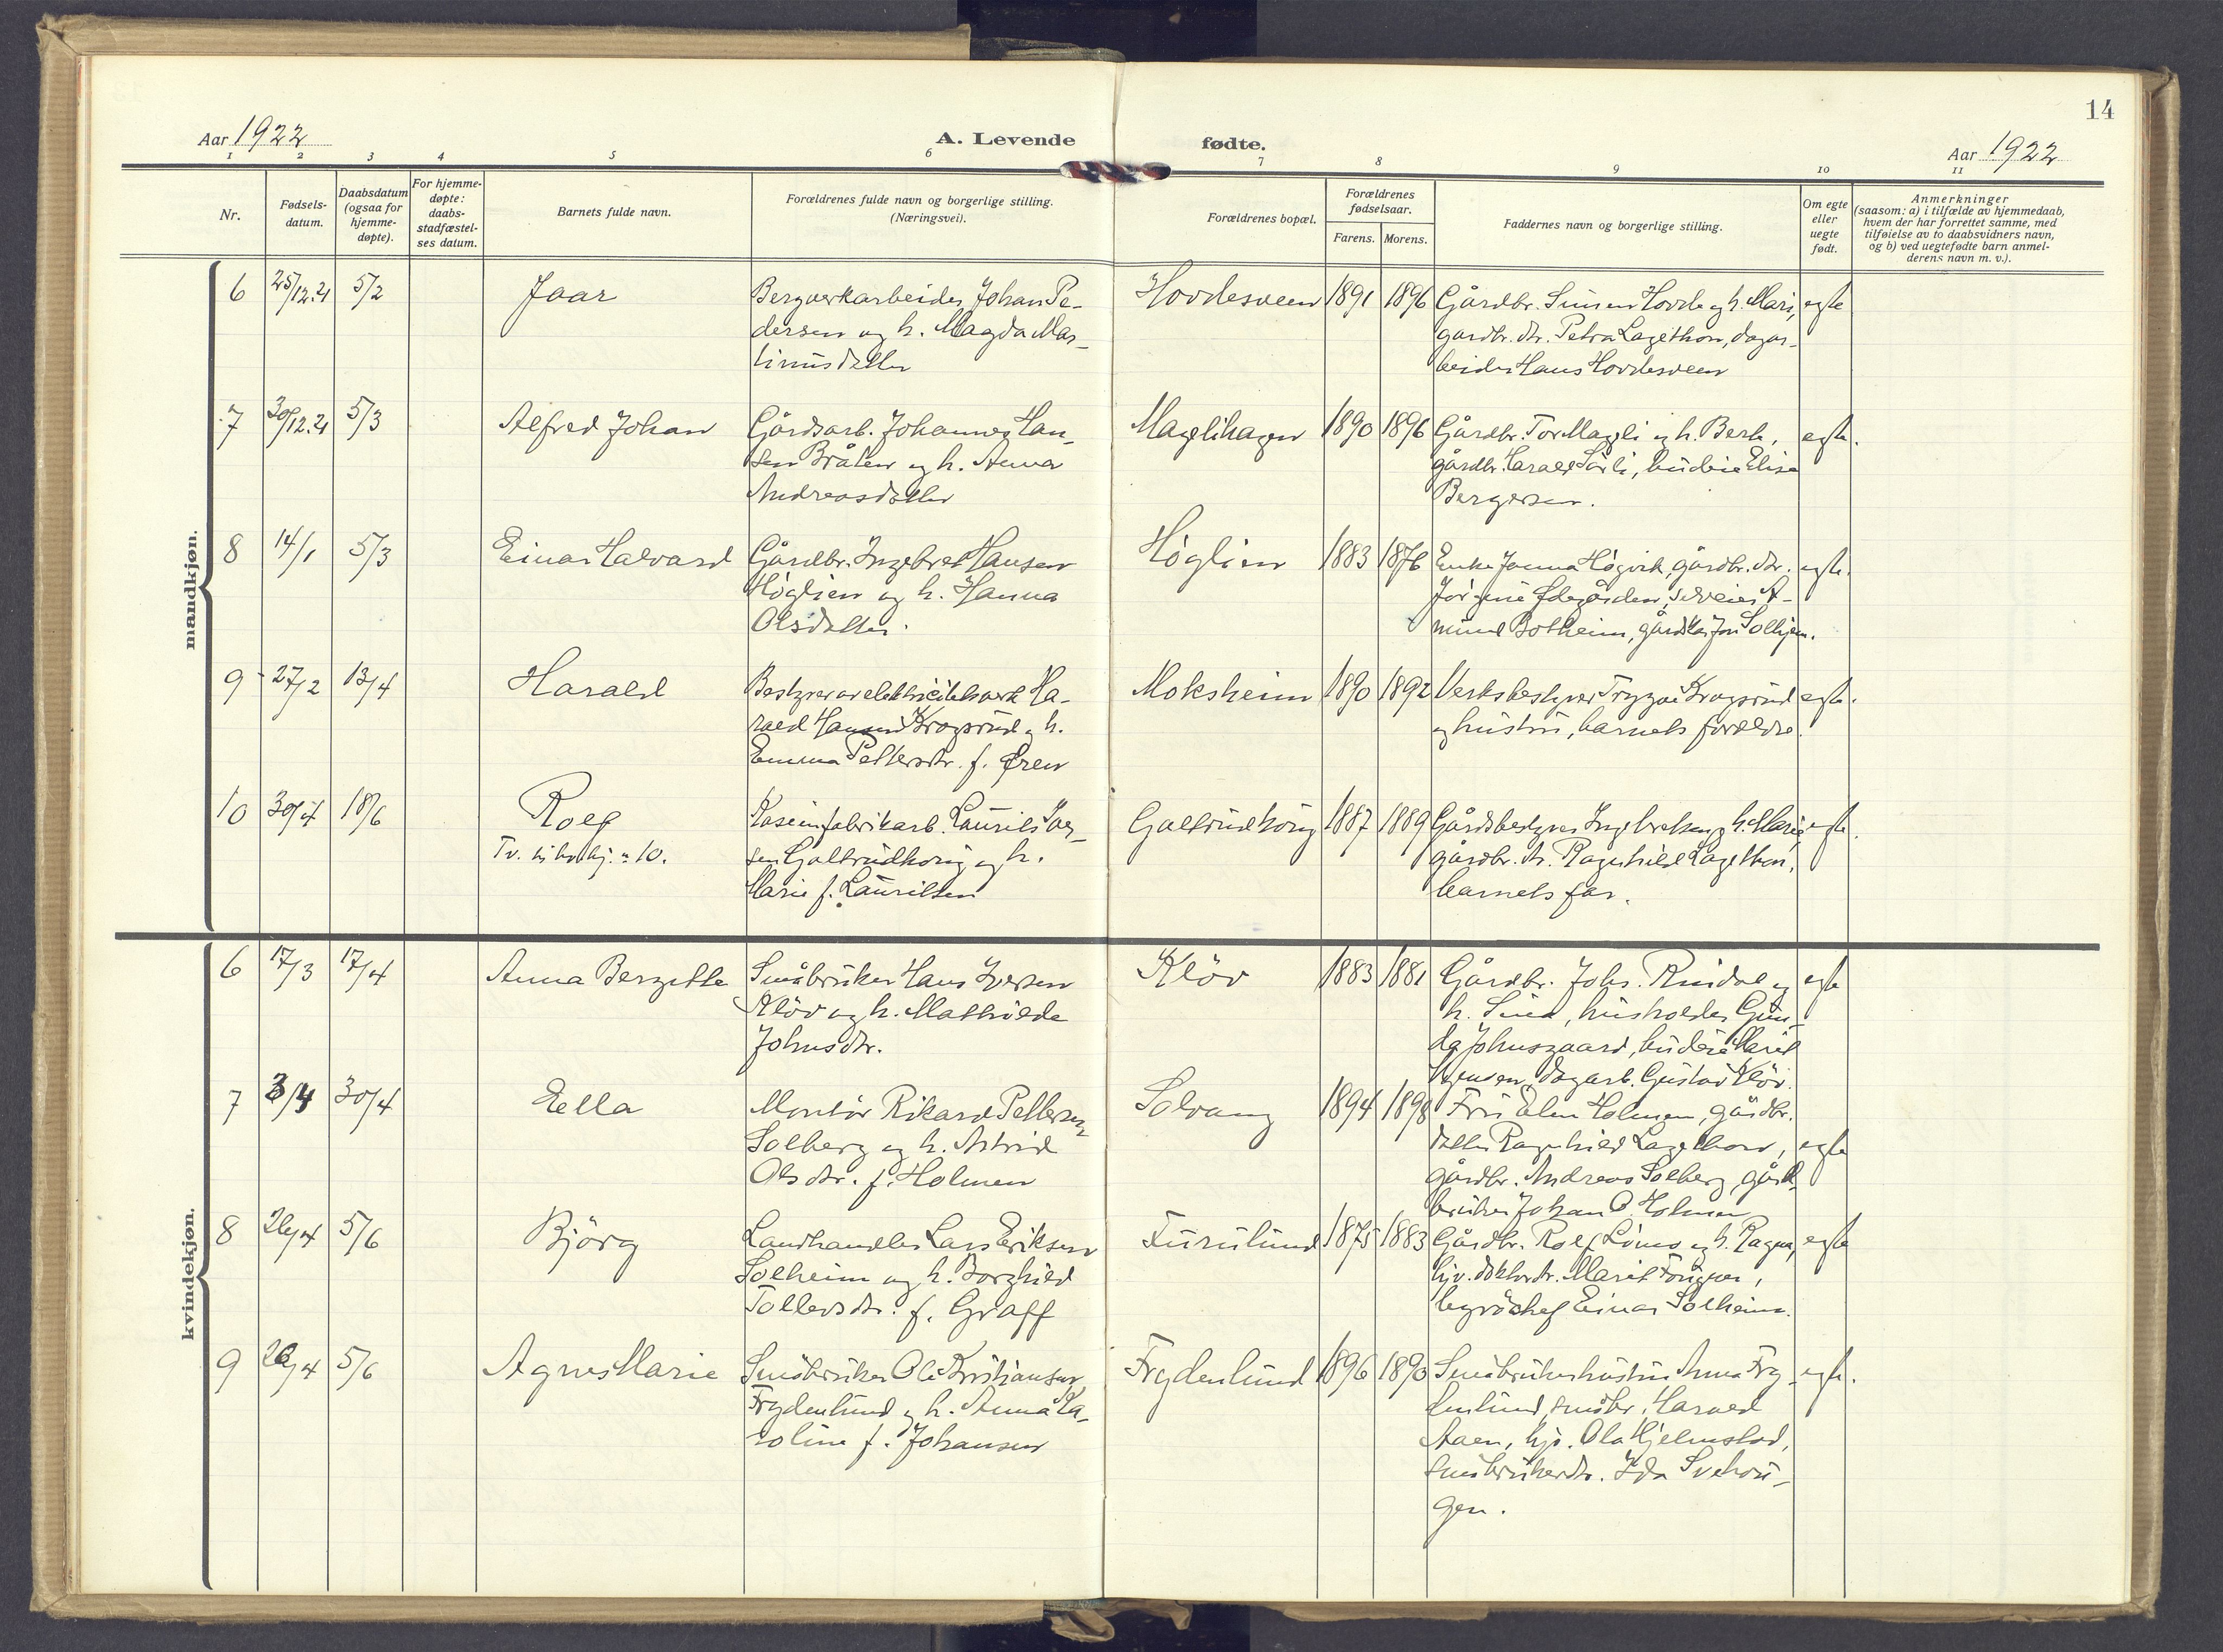 14
Aar 1922
A. Levende
fødte.
Aar 1922
1 2 3 4 5 6 7 8 9 10 11
Nr.
Fødsels-
datum.
Daabsdatum
(ogsaa for
hjemme-
døpte).
For hjemme-
døpte:
daabs-
stadfæstel-
ses datum.
Barnets fulde navn.
Forældrenes fulde navn og borgerlige stilling.
(Næringsvei).
Forældrenes bopæl.
Forældrenes
fødselsaar.
Farens. Morens.
Faddernes navn og borgerlige stilling.
Om egte
eller
uegte
født.
Anmerkninger
(saasom: a) i tilfælde av hjemmedaab,
hvem der har forrettet samme, med
tilføielse av to daabsvidners navn,
og b) ved uegtefødte barn anmel-
derens navn m. v.).
mandkjøn.
6 25/12.21 5/2
Jaar
Bergverkarbeider Johan Pe-
dersen og h. Magda Mar-
tinusdatter
Hovdesveen 1891 1896
Gårdbr. Hovde og h. Mari,
gardbr. dtr. Petra Lagethon, dagar-
beider Hans Hovdesveen
egte
7 30/12.21 5/3
Alfred Johan
Gårdsarb. Johannes Han-
sen Bråten og h. Anna
Andreasdatter
Magelihagen 1890 1896
Gårdbr. Tor Mageli og h. Berte,
gårdbr. Harald, budeie Elise
Bergersen.
egte.
8 14/1 5/3
Einar Halvard
Gårdbr. Ingebret Hansen
Höglien og h. Hanna
Olsdatter.
Höglien 1883 1876
Enke Høgvik, gårdbr. dtr.
Ødegården, selveier A-
mund Botheim, Solhjem.
egte.
9 27/2 13/4
Harald
Bestyrer av elektricitetsverk Ha-
rald Hansen Krogsrud og h.
Emma Pettersdtr. f. Øren
Moksheim 1890 1892
Verksbestyrer Trygve Krogsrud
og hustru, barnets forældre.
egte.
10 30/4 18/6
Rolf
Tv. til kvkj. n 10.
Kaseinfabrikarb. Laurits Iver-
sen Galtrudkorig og h.
Marie f. Lauritsen
Galtrudkorig 1887 1889
Gårdsbestyrer Ingebretsen og h. Marie,
gårdbr. dtr. Ragnhild Lagethon,
barnets far.
egte.
kvindekjøn.
6 17/3 17/4
Anna Bergitte
Småbruker Hans Iversen
Klöv og h. Mathilde
Johnsdtr.
Klöv 1883 1881
Gårdbr. Johs. Rindal og
h. Sina, husholder Gun-
da Johnsgaard, budeie Marit
Iversen, dagarb. Gustav Klöv.
egte
7 3/4 30/4
Eella
Montör Rikard Pettersen
Solberg og h. Astrid
Olsdtr. f. Holmen
Solvang 1894 1898
Fru Elen Holmen, gårdbr.
datter Ragnhild Lagethon,
gårdbr. Andreas Solberg, gård-
bruker Johan O. Holmen
egte
8 26/4 5/6
Björg
Landhandler Lars Eriksen
Solheim og h. Borghild
Tollersdtr. f. Graff
Furulund 1875 1883
Gårdbr. Rolf Lömo og h. Ragna,
hjv. doktordtr. Marit,
byråchef Einar Solheim.
egte
9 26/4 5/6
Agnes Marie
Småbruker Ole Kristiansen
Frydenlund og h. Anna Ka-
roline f. Johansen
Frydenlund 1896 1890
Småbrukerhustru Anna Fry-
denlund, småbr. Harald
Aaen, hjv. Ola Hjelmstad,
småbrukerdtr. Ida Svehau-
gen.
egte.